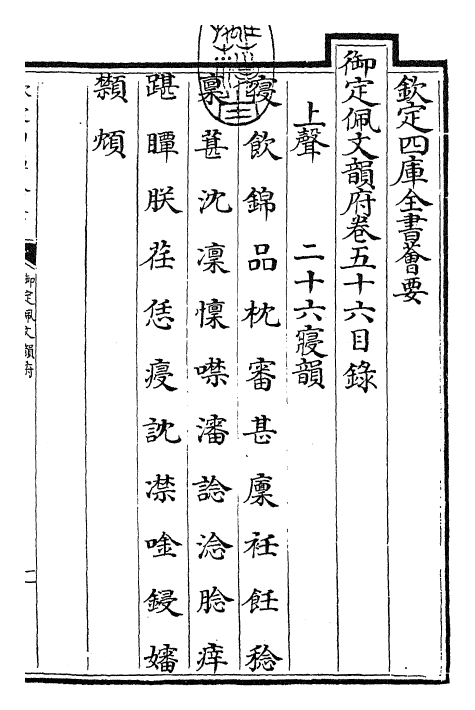 欽定四庫全書薈要
御定佩文韻府卷五十六目錄
上聲 二十六寢韻
寢飲錦品枕審甚廩衽飪稔
稟葚沈凜懍噤瀋諗淰腍瘁
踸瞫朕荏恁㾛訦凚唫鋟嬸
顙㾕
御定佩文韻府
一